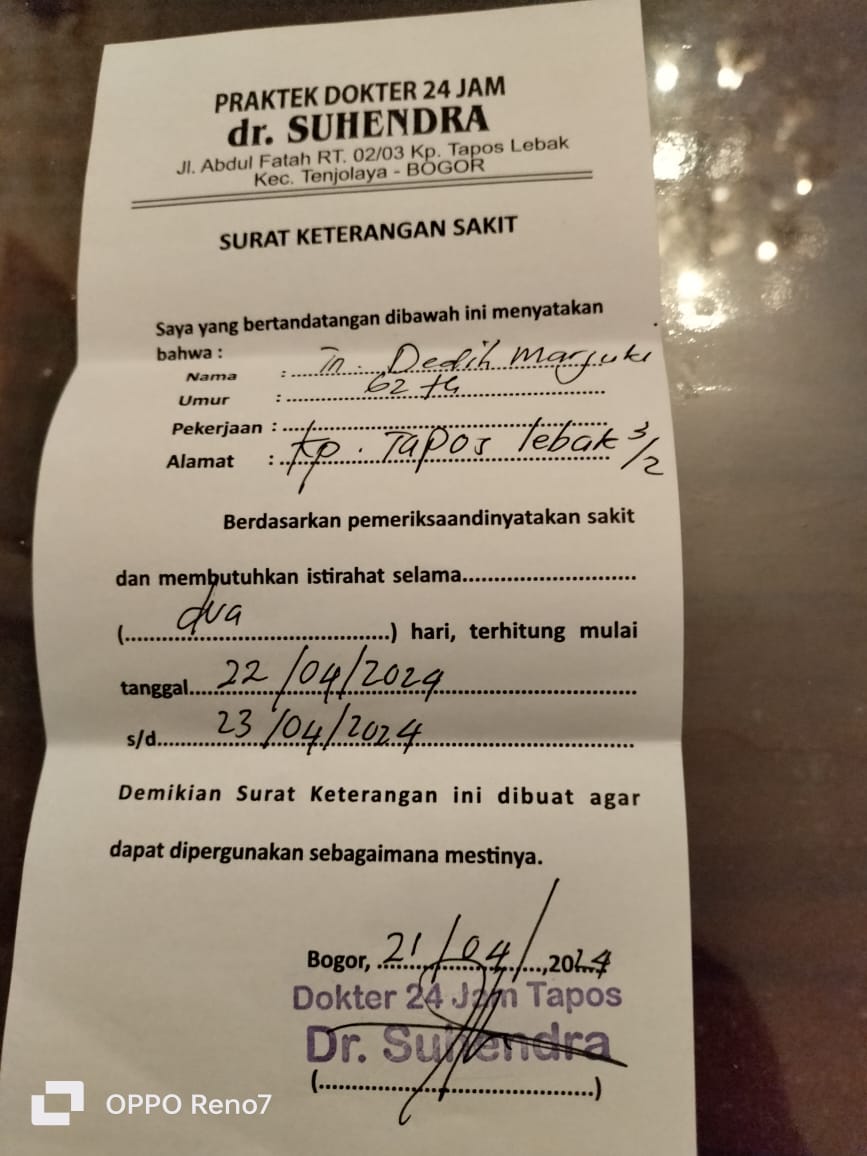 PRAKTEK DOKTER 24 JAM
dr. SUHENDRA
Jl. Abdul Fatah RT. 02/03 Kp. Tapos Lebak
Kec. Tenjolaya - BOGOR
SURAT KETERANGAN SAKIT
Saya yang bertandatangan dibawah ini menyatakan
bahwa :
Nama : Tn. Dedih Marjuki
Umur : 62 th
Pekerjaan :
Alamat : Kp. Tapos lebak 3/2
Berdasarkan pemeriksaandinyatakan sakit
dan membutuhkan istirahat selama
(dua) hari, terhitung mulai
tanggal 22/04/2024
s/d 23/04/2024
Demikian Surat Keterangan ini dibuat agar
dapat dipergunakan sebagaimana mestinya.
Bogor, 21/04/, 2024
Dokter 24 Jam Tapos
Dr. Suhendra
(..............................)
OPPO Reno7